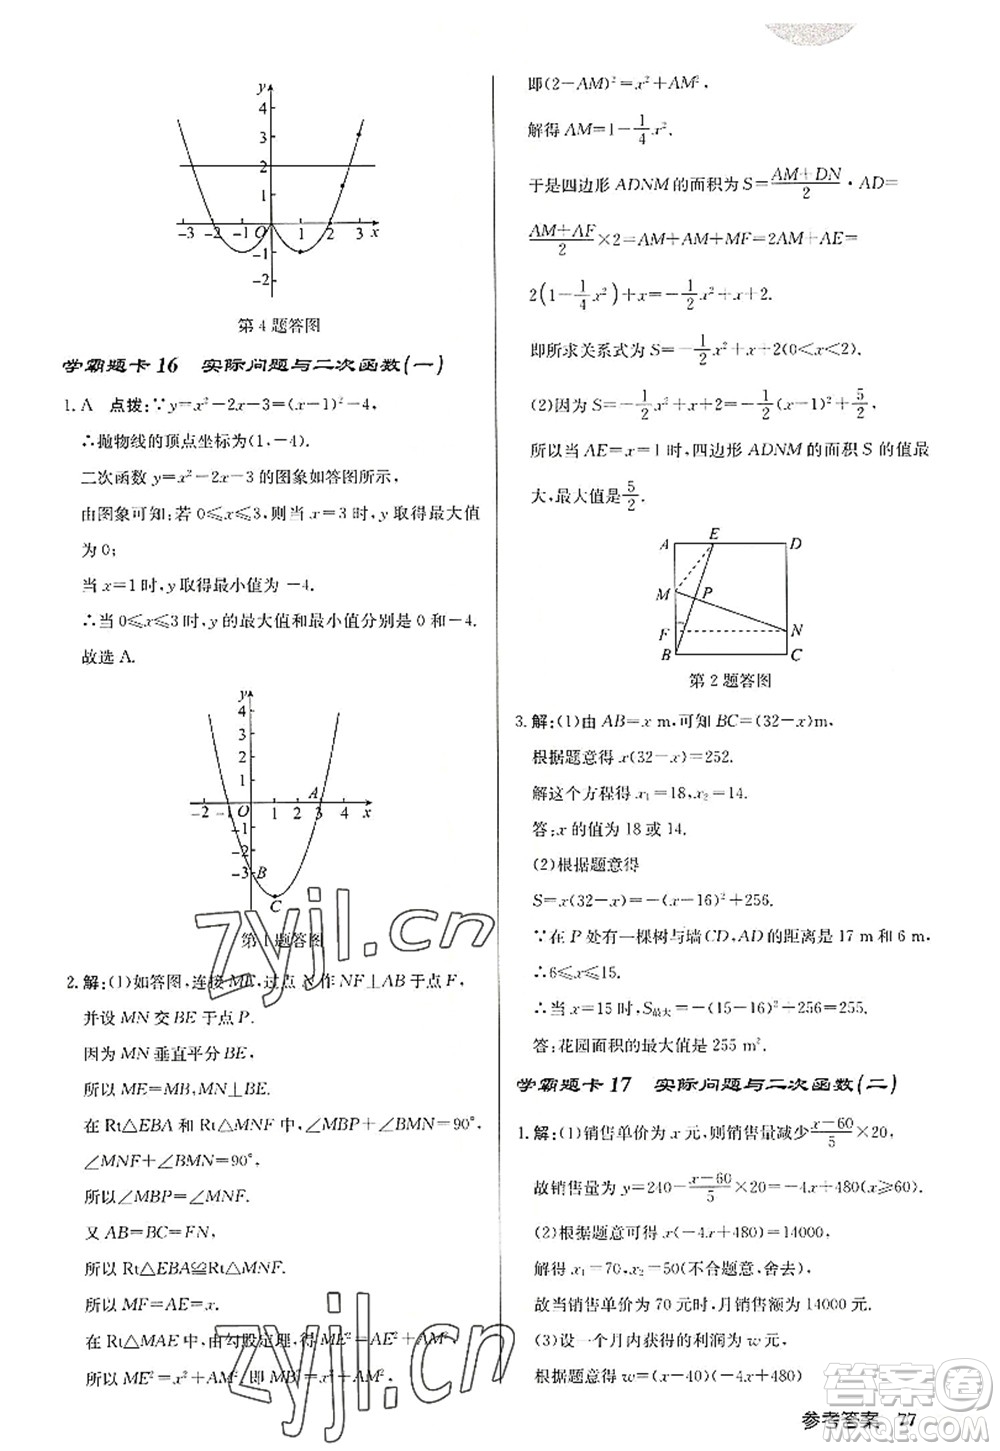 y
4
3
2
1
-3 -2 O 1 2 3 x
-1
-2
第4题答图
学霸题卡16 实际问题与二次函数(一)
1. A 点拨:∵y=x²-2x-3=(x-1)²-4,
∴抛物线的顶点坐标为(1,-4).
二次函数 y=x²-2x-3 的图象如答图所示,
由图象可知:若 0≤x≤3,则当 x=3 时,y 取得最大值
为 0;
当 x=1 时,y 取得最小值为 -4.
∴当 0≤x≤3 时,y 的最大值和最小值分别是 0 和 -4.
故选 A.
y
4
3
2
1
A
-2 -1 O 1 2 3 4 x
-1
-2
-3 B
C
第1题答图
2. 解:(1)如答图,连接 ME,过点 N 作 NF⊥AB 于点 F,
并设 MN 交 BE 于点 P.
因为 MN 垂直平分 BE,
所以 MB=ME,MN⊥BE.
在 Rt△EBA 和 Rt△MNF 中,∠MBP+∠BMN=90°,
∠MNF+∠BMN=90°,
所以∠MBP=∠MNF.
又 AB=BC=FN,
所以 Rt△EBA≌Rt△MNF.
所以 MF=AE=x.
在 Rt△MAE 中,由勾股定理,得 ME²=AE²+AM²,
所以 ME²=x²+AM²,即 MB²=x²+AM²,
即(2-AM)²=x²+AM²,
解得 AM=1-1/4x².
于是四边形 ADNM 的面积为 S=(AM+DN)/2·AD=
(AM+AF)/2×2=AM+AM+MF=2AM+AE=
2(1-1/4x²)+x=-1/2x²+x+2.
即所求关系式为 S=-1/2x²+x+2(0<x<2).
(2)因为 S=-1/2x²+x+2=-1/2(x-1)²+5/2,
所以当 AE=x=1 时,四边形 ADNM 的面积 S 的值最
大,最大值是5/2.
A E D
M P
F N
B C
第2题答图
3. 解:(1)由 AB=x m,可知 BC=(32-x)m,
根据题意得 x(32-x)=252.
解这个方程得 x₁=18,x₂=14.
答:x 的值为 18 或 14.
(2)根据题意得
S=x(32-x)=-(x-16)²+256.
∵在 P 处有一棵树与墙 CD,AD 的距离是 17 m 和 6 m,
∴6≤x≤15.
∴当 x=15 时,S最大=-(15-16)²+256=255.
答:花园面积的最大值是 255 m².
学霸题卡17 实际问题与二次函数(二)
1. 解:(1)销售单价为 x 元,则销售量减少(x-60)/5×20,
故销售量为 y=240-(x-60)/5×20=-4x+480(x≥60).
(2)根据题意可得 x(-4x+480)=14000,
解得 x₁=70,x₂=50(不合题意,舍去).
故当销售单价为 70 元时,月销售额为 14000 元.
(3)设一个月内获得的利润为 w 元,
根据题意得 w=(x-40)(-4x+480)
zyjl.cn
zyjl.cn
答案圈
MXQE.COM
参考答案 77